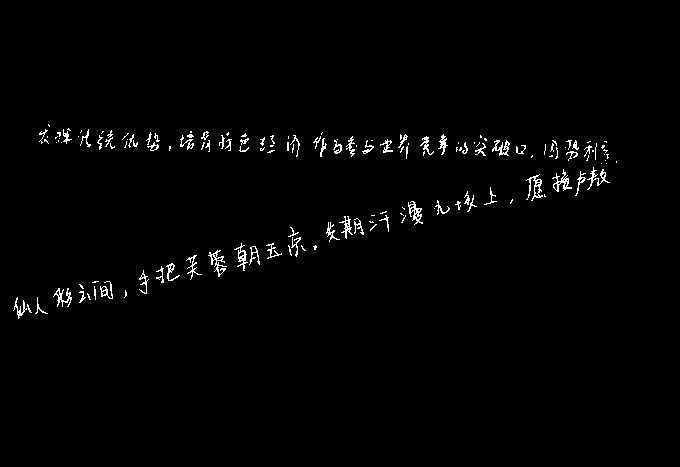 发挥传统优势，培育特色经济作为参与世界竞争的突破口，因势利导，
仙人彩云间，手把芙蓉朝玉京，先期汗漫九垓上，愿接卢敖